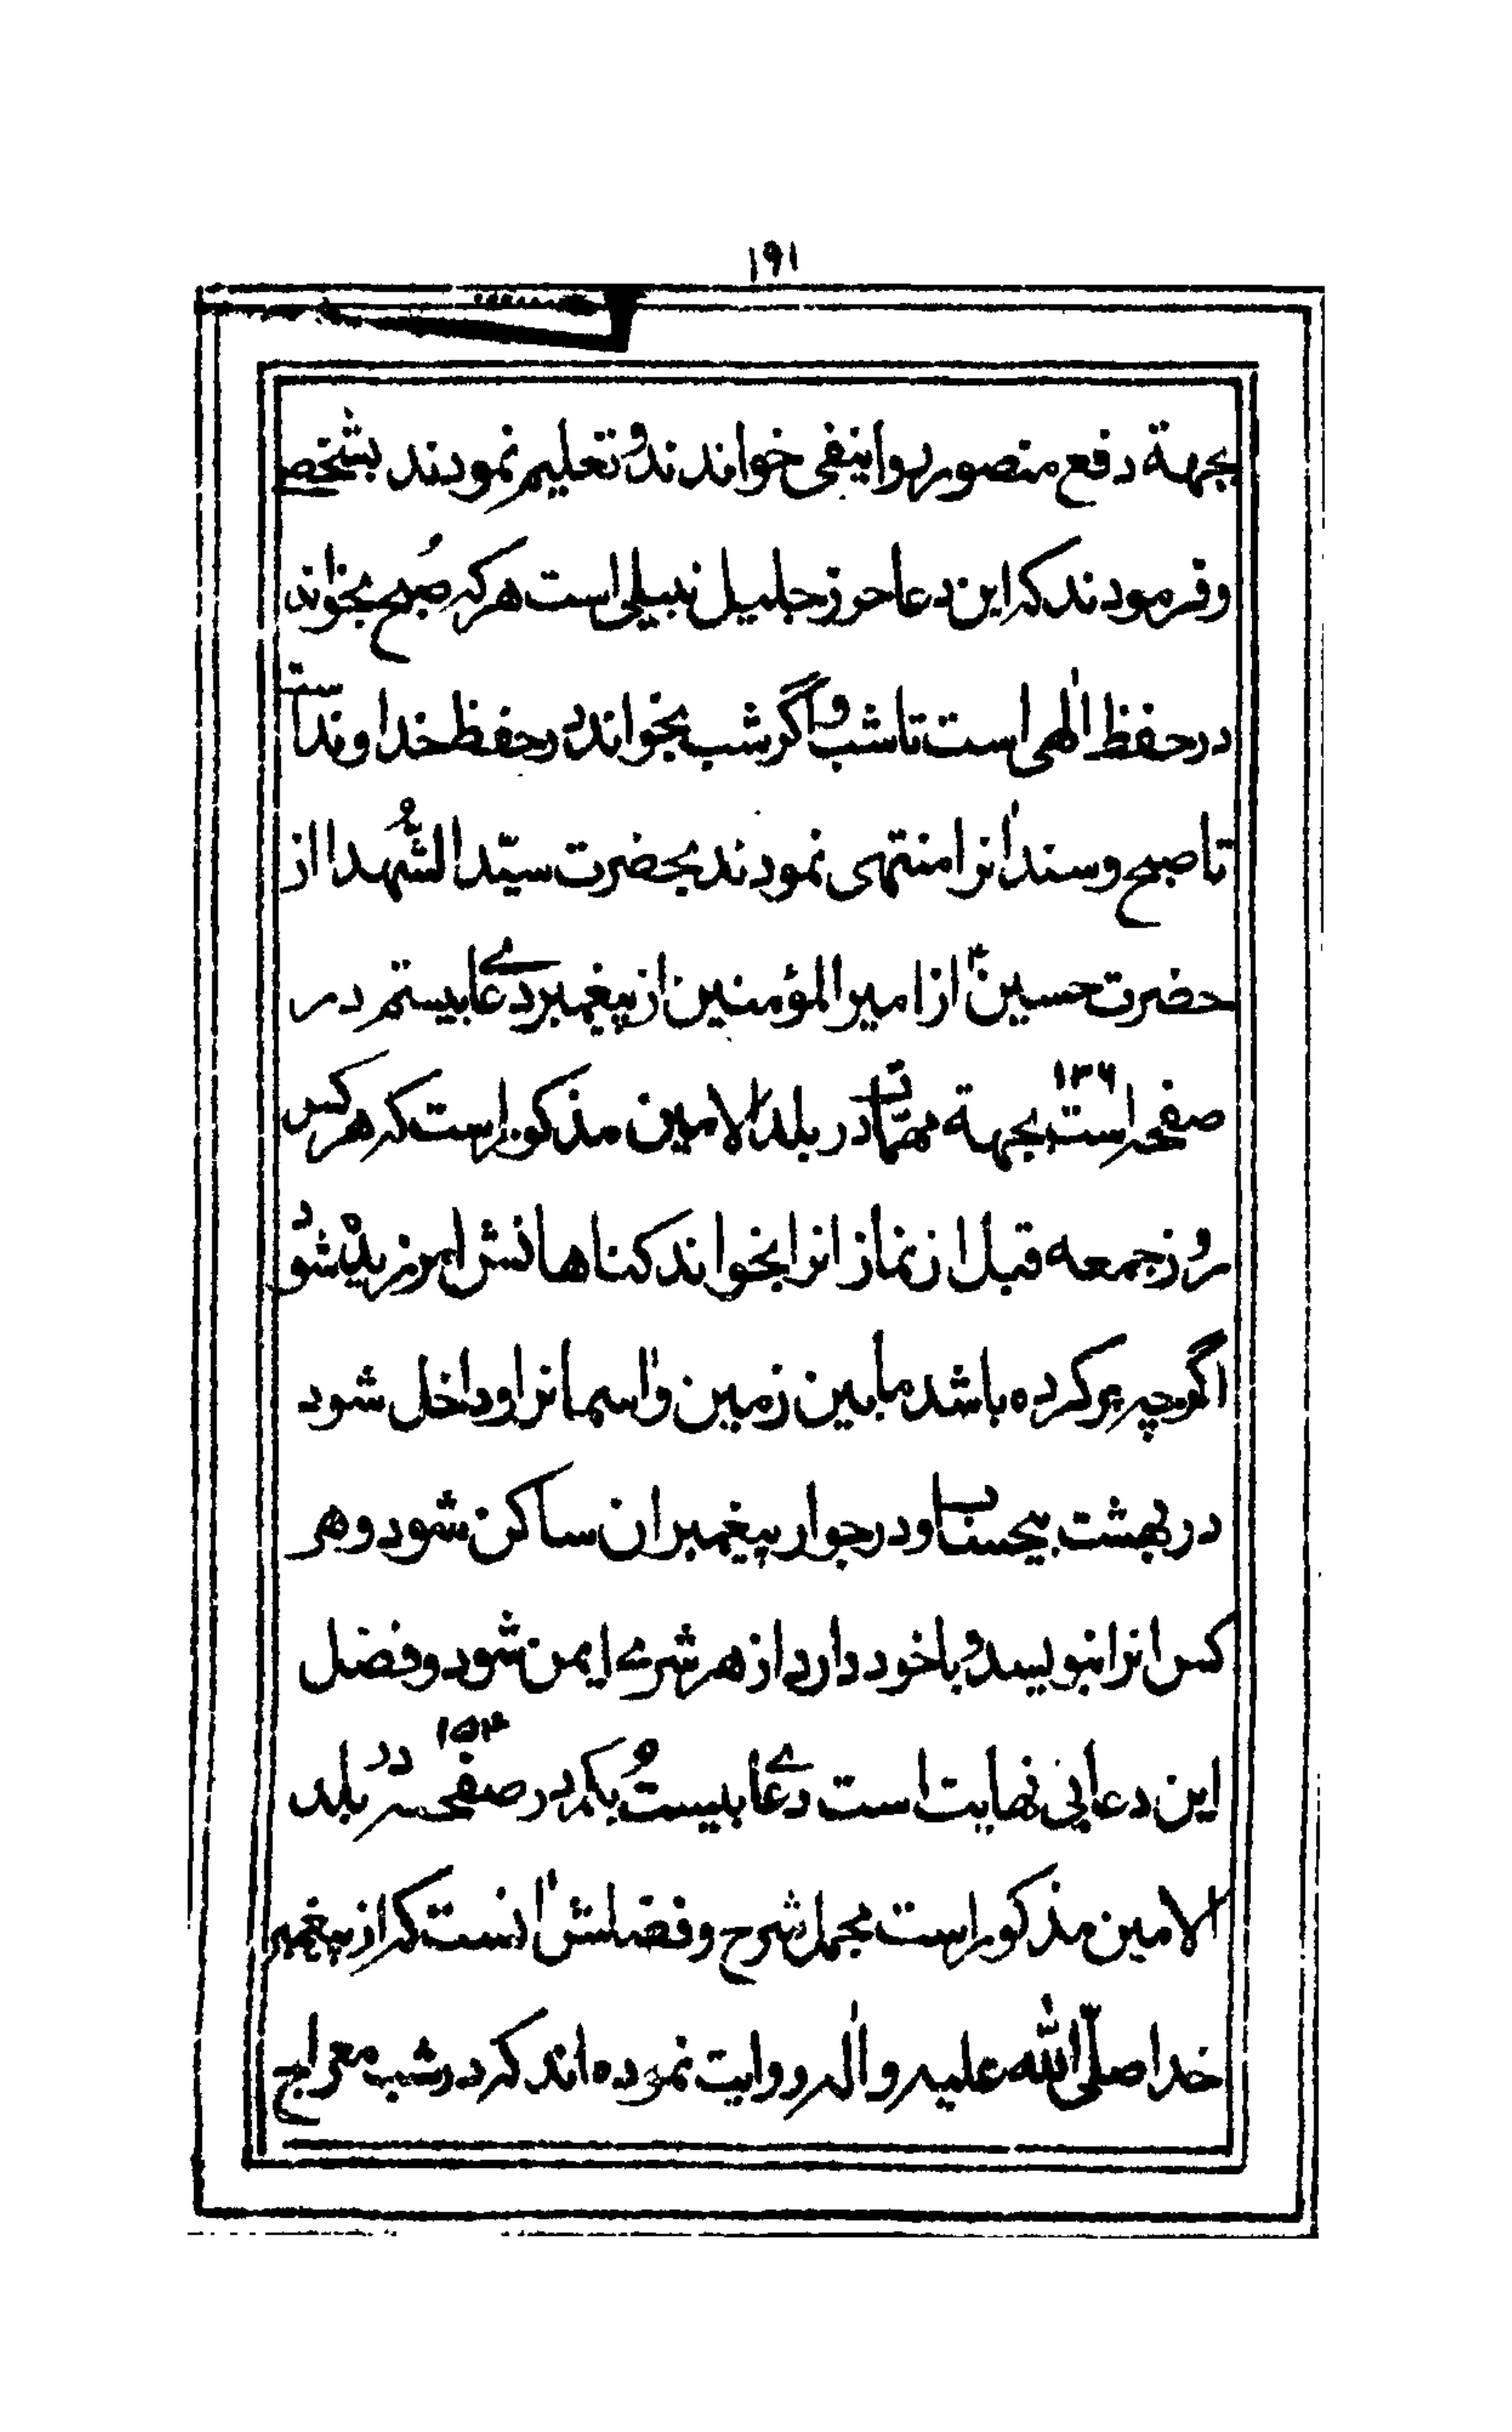 ۱۹۱
بجهة دفع منصور دوانیقی خواندند و تعلیم نمودند بشخصے
و فرمودند که این دعا حرز جلیل نبیلی است هر که صُبح بخواند
در حفظ الٰهی است تا شب و اگر شب بخواند در حفظ خداوند است
تا صبح و سند انرا منتهی نمودند بحضرت سیّد الشُهدا از
حضرت حسین از امیر المؤمنین از پیغمبر دعای بیستم در
صفحه ۱۳۶ است بجهة مهمّات در بلد الامین مذکور است که هر کس
روز جمعه قبل از نماز انرا بخواند کناهانش امرزیده شود
اگرچه پر کرده باشد مابین زمین و اسمانرا و داخل شود
در بهشت بیحساب و در جوار پیغمبران ساکن شود و هر
کس انرا بنویسد و با خود دارد از هر شرے ایمن شود و فضل
این دعا بی نهایت است دعاے بیست و یکم در صفحه ۱۵۳ در بلد
الامین مذکور است مجمل شرح و فضلش انست که از پیغمبر
خدا صلّی الله علیه و اله روایت نموده اند که در شب معراج